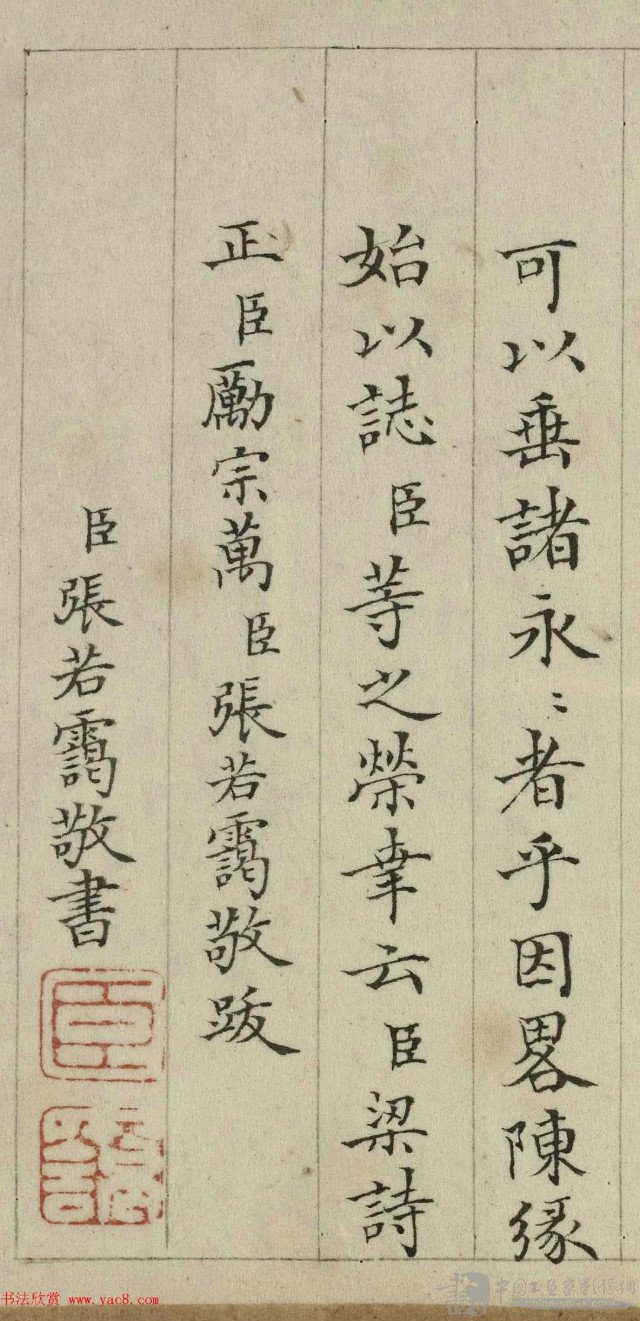 可以垂諸永〻者乎因畧陳緣
始以誌臣等之榮幸云臣梁詩
正臣勵宗萬臣張若靄敬跋
臣張若靄敬書
臣
书法欣赏 www.yac8.com